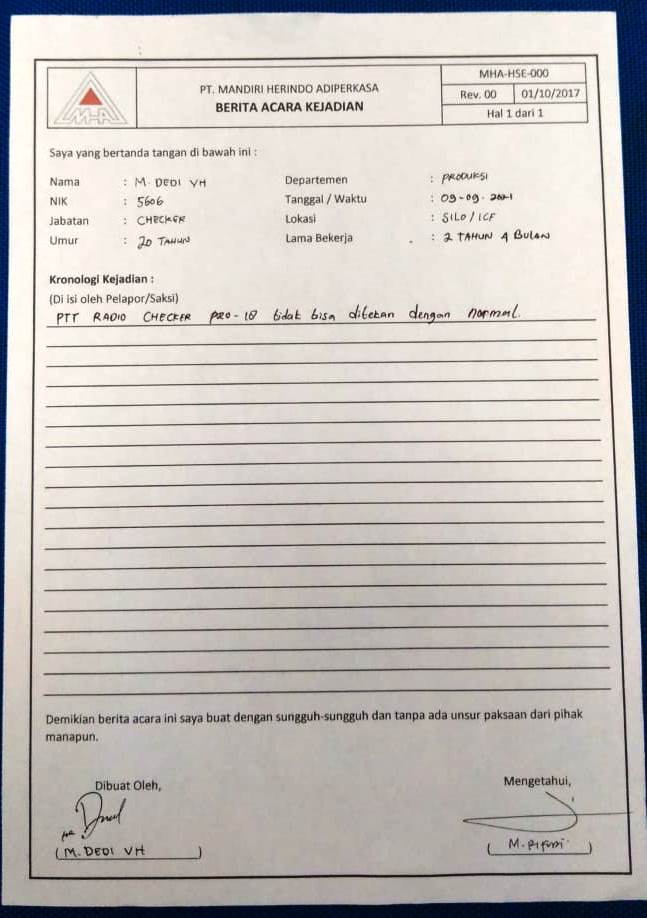 MHA
PT. MANDIRI HERINDO ADIPERKASA
BERITA ACARA KEJADIAN
MHA-HSE-000
Rev. 00 01/10/2017
Hal 1 dari 1
Saya yang bertanda tangan di bawah ini :
Nama : M. DEDI VH Departemen : PRODUKSI
NIK : 5606 Tanggal / Waktu : 09-09-2021
Jabatan : CHECKER Lokasi : SILO / ICF
Umur : 20 TAHUN Lama Bekerja : 2 TAHUN 4 BULAN
Kronologi Kejadian :
(Di isi oleh Pelapor/Saksi)
PTT RADIO CHECKER PRO-18 tidak bisa ditekan dengan normal.
Demikian berita acara ini saya buat dengan sungguh-sungguh dan tanpa ada unsur paksaan dari pihak
manapun.
Dibuat Oleh, Mengetahui,
(M. DEDI VH) (M.)